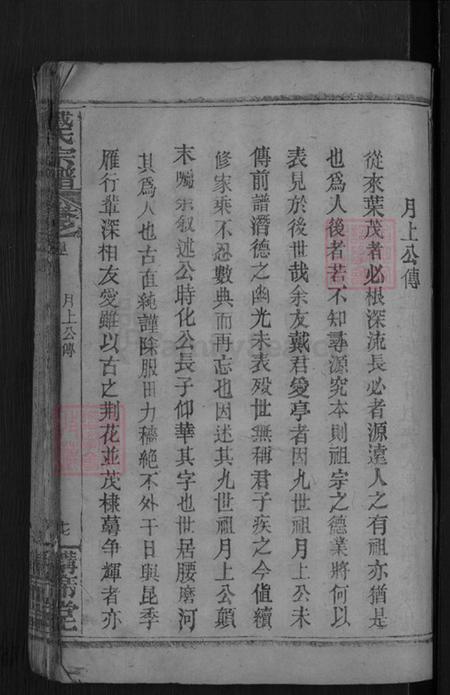 月上公傳
從來葉茂者必根深流長必者源遠人之有祖亦猶是
也為人後者若不知尋源究本則祖宗之德業將何以
表見於後世哉余友戴君愛亭者因九世祖月上公未
傳前譜潛德之幽光未表殁世無稱君子疾之今值續
修家乘不忍數典而再忘也因述其九世祖月上公顛
末囑余叙述公時化公長子仰華其字也世居腰磨河
其爲人也古直純謹除服田力穡絶不外干日與昆季
雁行輩深相友愛雖以古之荆花並茂棣萼争輝者亦
戴氏宗譜
月上公傳
講席堂